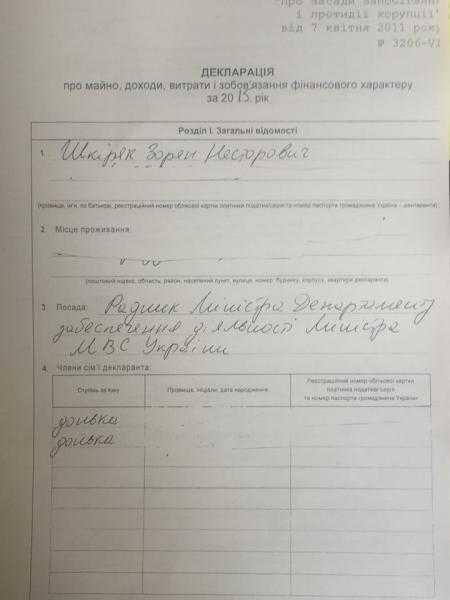 "Про засади запобігання
і протидії корупції"
від 7 квітня 2011 року
№ 3206-VI
ДЕКЛАРАЦІЯ
про майно, доходи, витрати і зобов'язання фінансового характеру
за 2015 рік
Розділ I. Загальні відомості
1. Шкіряк Зорян Несторович
(прізвище, ім'я, по батькові, реєстраційний номер облікової картки платника податків/серія та номер паспорта громадянина України – декларанта)
2. Місце проживання:
(поштовий індекс, область, район, населений пункт, вулиця, номер: будинку, корпусу, квартири декларанта)
3. Посада: Радник Міністра Департаменту
забезпечення діяльності Міністра
МВС України
4. Члени сім'ї декларанта:
Ступінь зв'язку
Прізвище, ініціали, дата народження
Реєстраційний номер облікової картки
платника податків/серія
та номер паспорта громадянина України
донька
донька